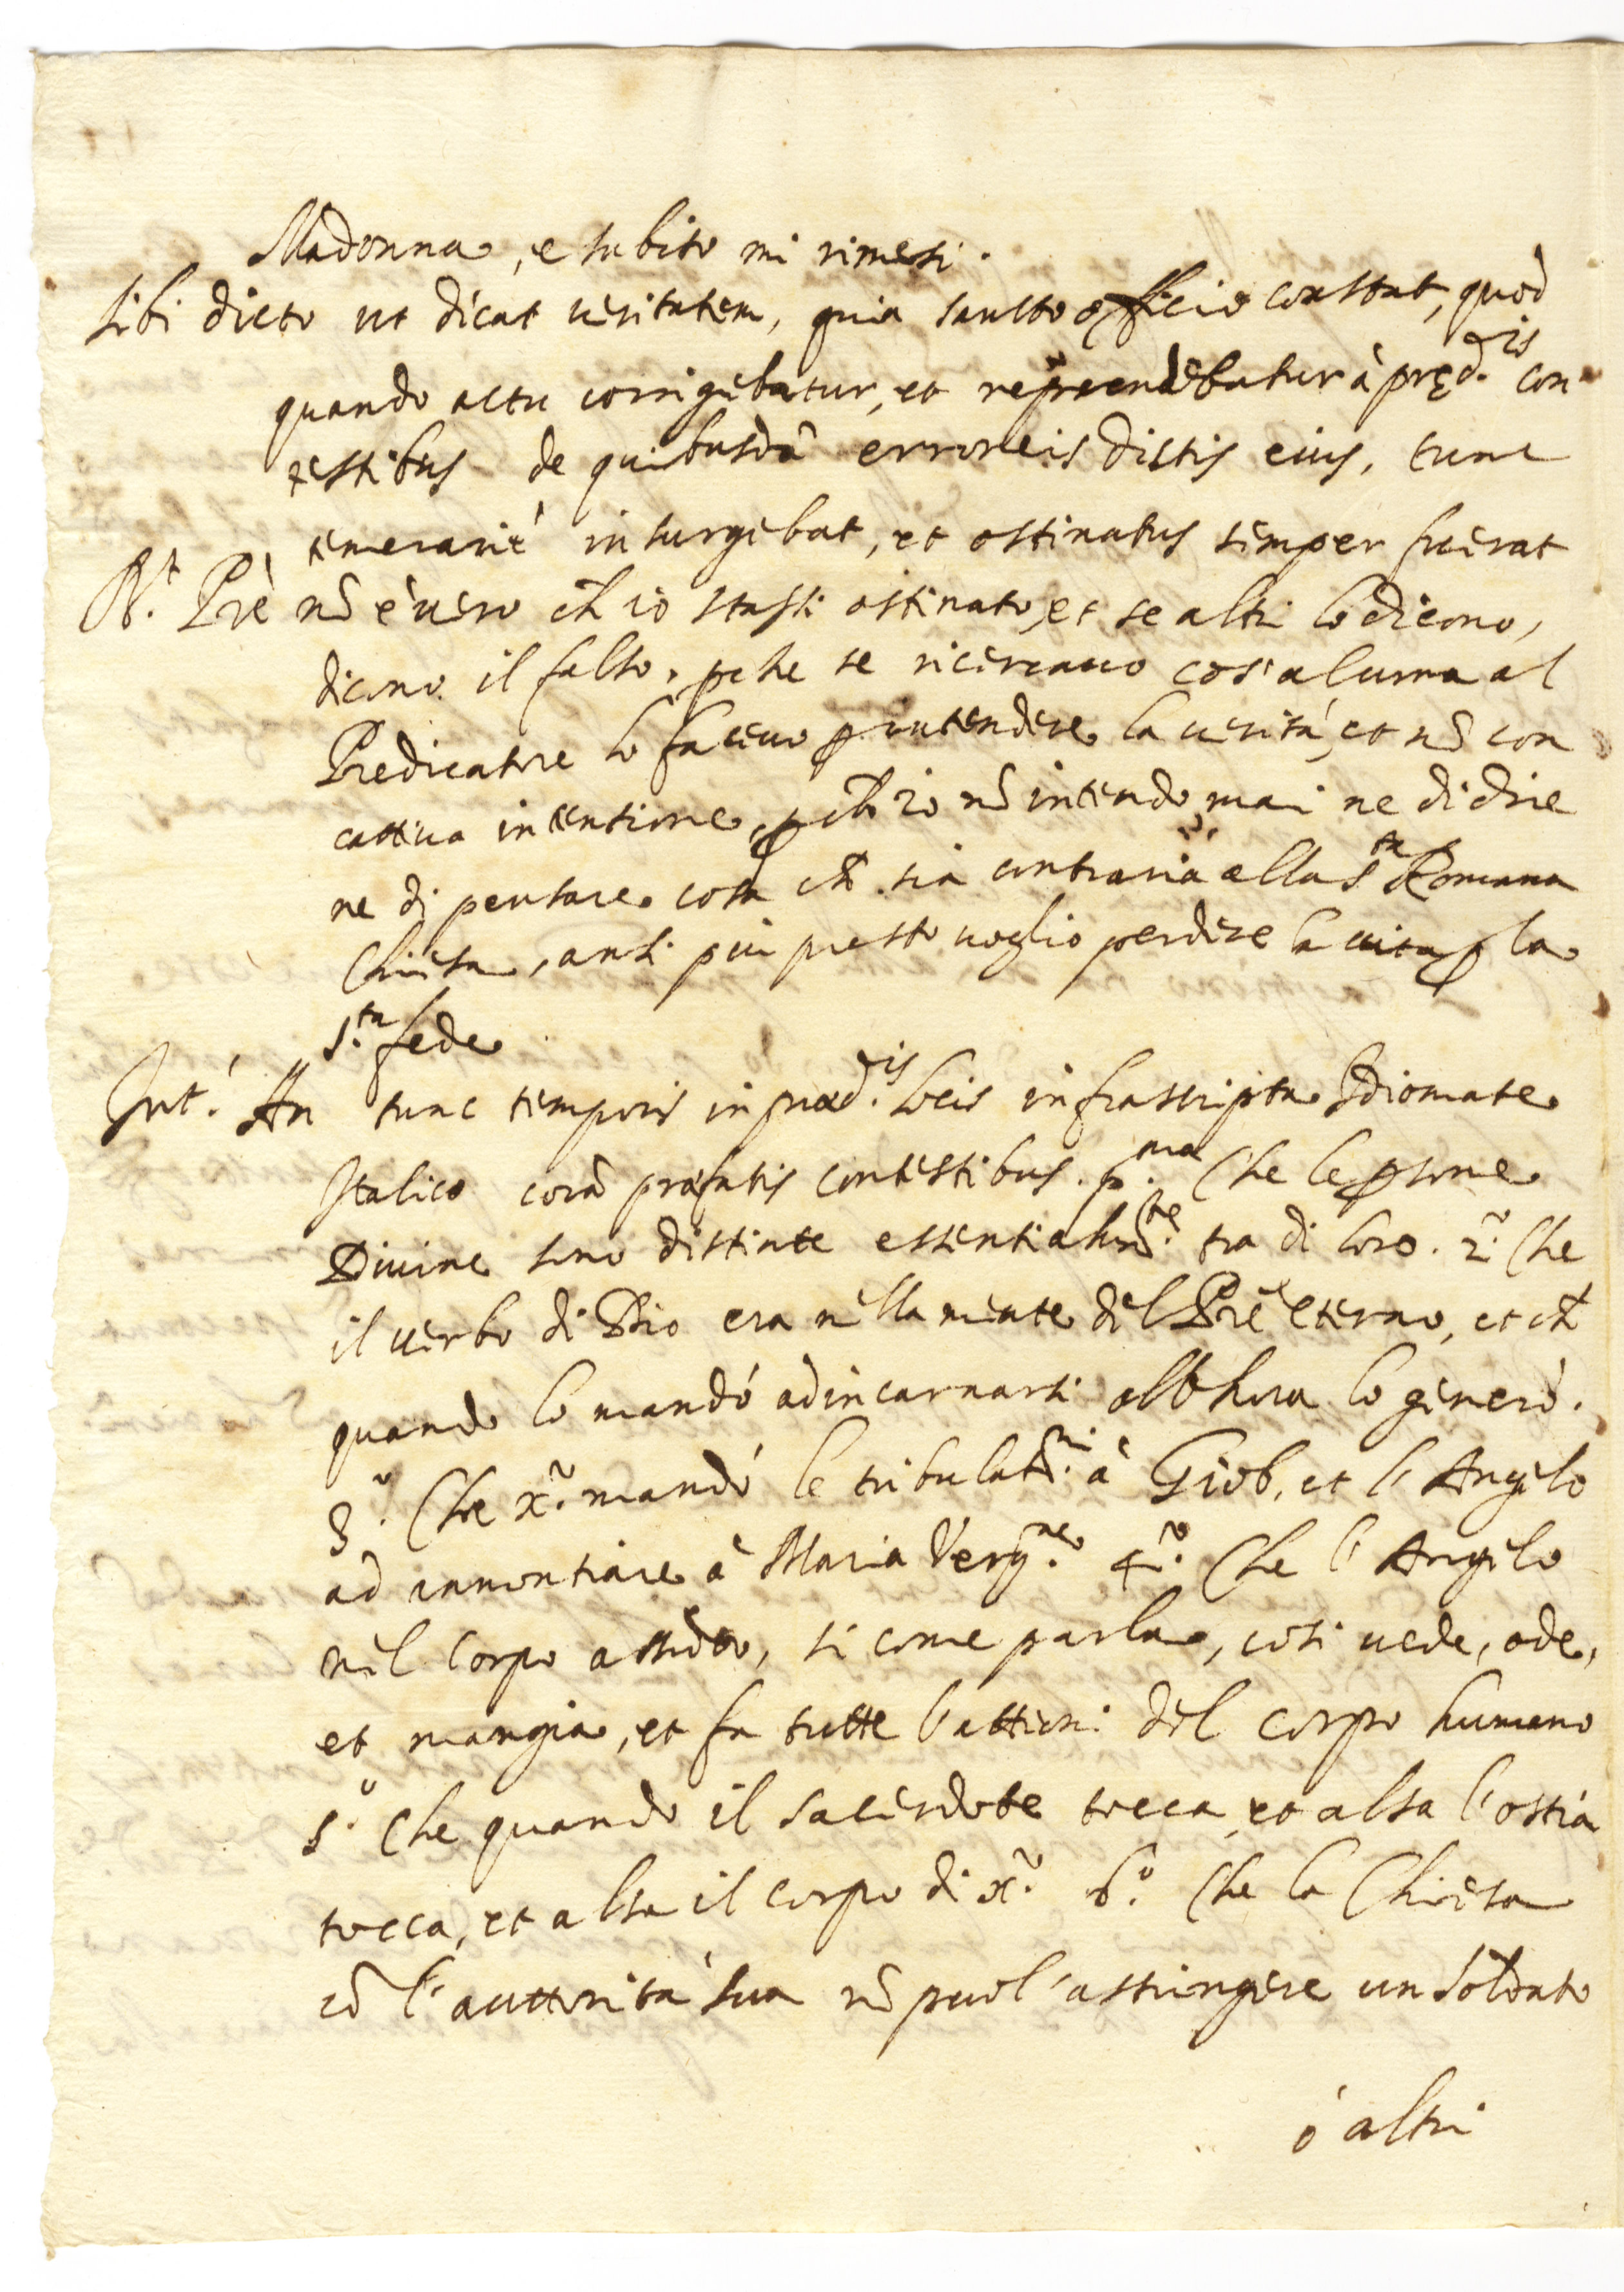 Madonna, e subito mi rimesi.
Sibi dicto ut dicat veritatem, quia sancto officio constat, quod
quando actu corrigebatur, et reprendebatur à pręd.is con
testibus de quibusdā erroneis dictis eius, tunc
temerariè insurgebat, et ostinatus semper fuerat
R.t Prē nō è vero ch̄ io stassi ostinato, et se altri lo dicono,
dicono il falso, pche se ricercavo cos'alcuna al
Predicatore lo facevo p intendere la verità, et nō con
cattiva intentione, p ch̄ io nō intendo mai ne di dire
ne di pensare cosa ch̄ sia contraria alla S.ta Romana
Chiesa, anzi più presto voglio perdere la vita p la
S.ta fede
Int.' An tunc temporis in præd.is locis infrascripta Idiomate
Italico corā præfatis contestibus. p.ma Che le psone
Divine sono distinte essentialm̄.te tra di loro. 2.o Che
il verbo di Dio era nella mente del Prē eterno, et ch̄
quando lo mandò ad incarnarsi allhora lo generò.
3.o Che x.o mandò le tribulat̄.ni à Giob, et l'Angelo
ad annontiare à Maria Verg.ne 4.o Che l'Angelo
nel corpo assūto, si come parla, così vede, ode,
et mangia, et fa tutte l'attioni del corpo humano
5.o Che quando il Sacerdote tocca, et alsa l'ostia
tocca, et alsa il corpo di x.o 6.o Che la Chiesa
cō l'auttorità sua nō puol'astringere un soldato
ó altri